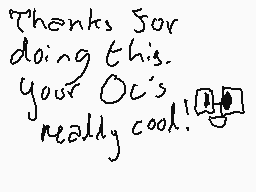 Thanks for
doing this.
Your Oc's
really cool!